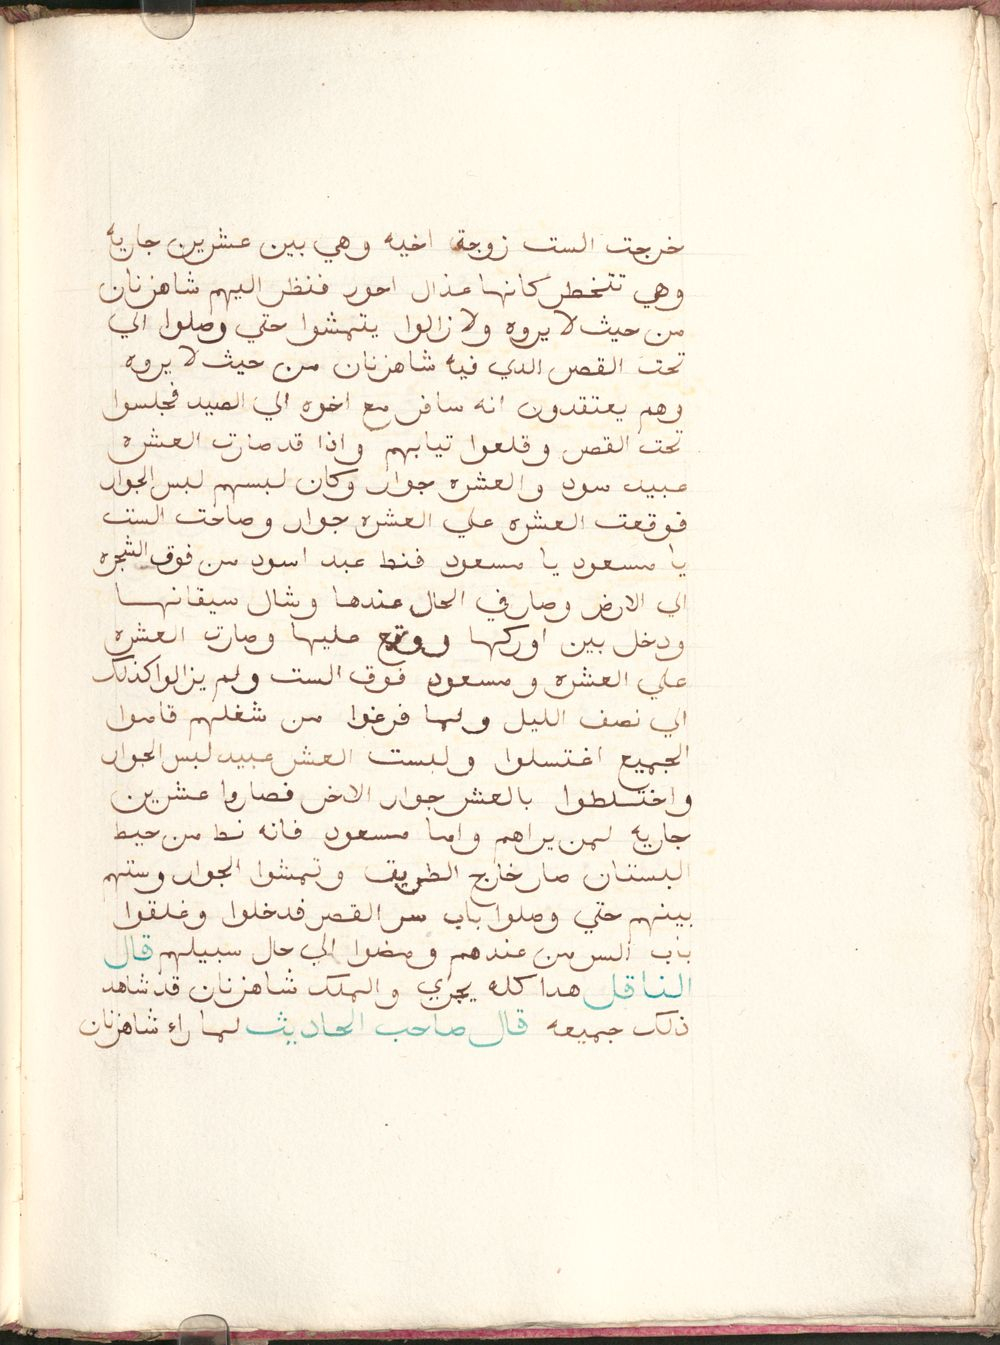 خرجت الست زوجة اخيه وهي بين عشرين جاريه
وهي تتخطر كانها غذال احور فنظر اليهم شاهزنان
من حيث لا يروه ولا زالوا يتمشوا حتي وصلوا الي
تحت القصر الدي فيه شاهزنان من حيث لا يروه
وهم يعتقدون انه سافر مع اخوه الي الصيد فجلسوا
تحت القصر وقلعوا تيابهم واذا قد صارت العشره
عبيد سود والعشره جوار وكان لبسهم لبس الجوار
فوقعت العشره علي العشره جوار وصاحت الست
يا مسعود يا مسعود فنط عبد اسود من فوق الشجره
الي الارض وصار في الحال عندها وشال سيقانها
ودخل بين اوركها ووقع عليها وصارت العشره
علي العشره ومسعود فوق الست ولم يزالوا كذلك
الي نصف الليل ولما فرغوا من شغلهم قاموا
الجميع اغتسلوا ولبست العشر عبيد لبس الجوار
واختلطوا بالعشر جوار الاخر فصاروا عشرين
جاريه لمن يراهم واما مسعود فانه نط من حيط
البستان صار خارج الطريق وتمشوا الجوار وستهم
بينهم حتي وصلوا باب سر القصر فدخلوا وغلقوا
باب السر من عندهم ومضوا الي حال سبيلهم قال
الناقل هدا كله يجري والملك شاهزنان قد شاهد
ذلك جميعه قال صاحب الحاديث لما راء شاهزنان